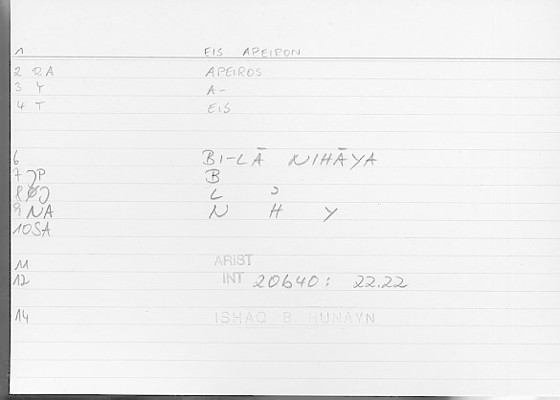 1 EIS APEIRON
2 RA APEIROS
3 Y A-
4 T EIS
6 BI-LĀ NIHĀYA
7 JP B
8 J L ʾ
9 NA N H Y
10 SA
11 ARIST
12 INT 20b40: 22.22
14 ISHAQ B. HUNAYN